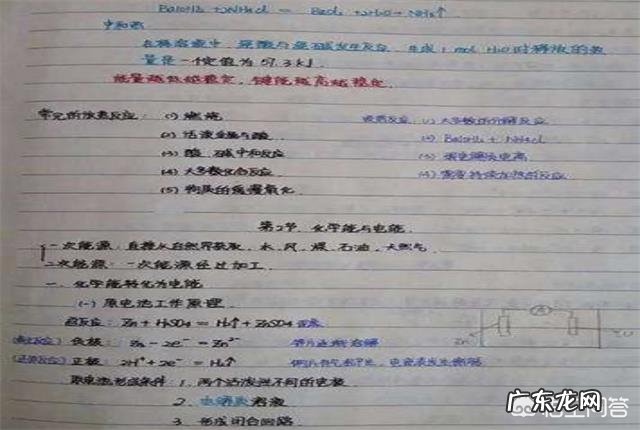 Ba(OH)₂ + 2NH₄Cl = BaCl₂ + 2H₂O + NH₃↑
中和热
在稀溶液中，强酸与强碱发生反应，生成1mol H₂O时释放的热
量是一个定值为57.3kJ
能量越低越稳定，键能越高越稳定
常见的放热反应：(1) 燃烧 吸热反应 (1) 大多数的分解反应
(2) 活泼金属与酸 (2) Ba(OH)₂ + NH₄Cl
(3) 酸、碱中和反应 (3) 弱电解质电离
(4) 大多数化合反应 (4) 需要持续加热的反应
(5) 物质的缓慢氧化
第2节 化学能与电能
一次能源：直接从自然界获取，水、风、煤、石油、天然气
二次能源：一次能源经过加工
一、化学能转化为电能
(一) 原电池工作原理
总反应：Zn + H₂SO₄ = H₂↑ + ZnSO₄
负极：Zn - 2e⁻ = Zn²⁺
(还原反应) 正极：2H⁺ + 2e⁻ = H₂↑
A
Zn
原电池形成条件：1. 两个活泼性不同的电极
2. 电解质溶液
3. 形成闭合回路
悟空问答
广东龙网